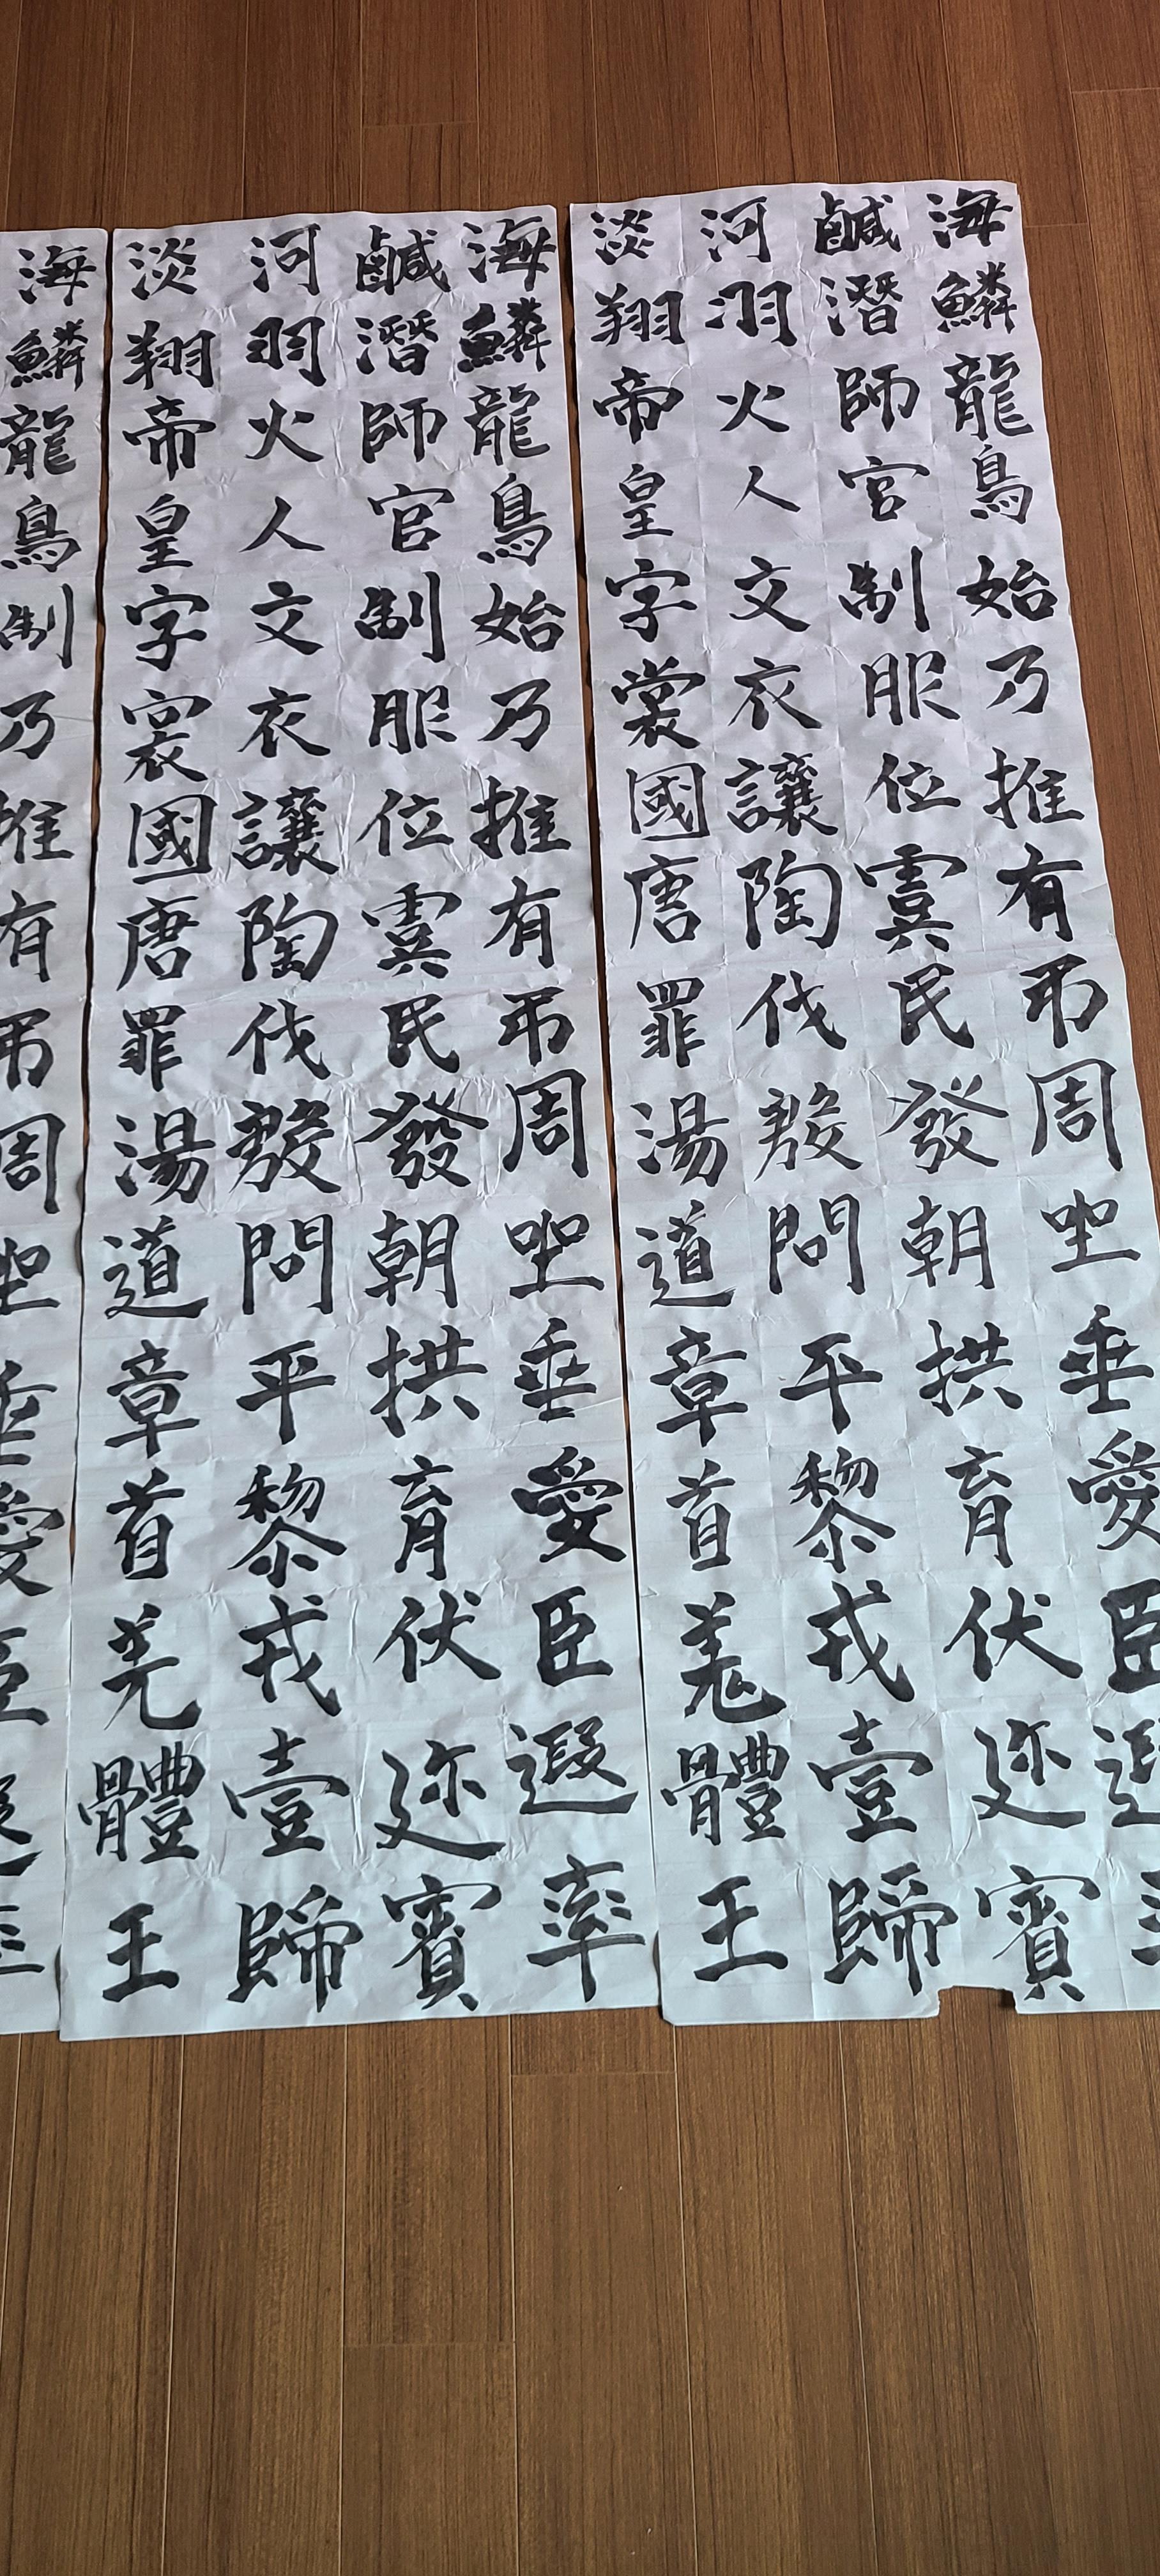 海鹹河淡
鱗潛羽翔
龍師火帝
鳥官人皇
始制文字
乃服衣裳
推位讓國
有虞陶唐
弔民伐罪
周發殷湯
坐朝問道
垂拱平章
愛育黎首
臣伏戎羌
遐迩壹體
率賓歸王
海鹹河淡
鱗潛羽翔
龍師火帝
鳥官人皇
始制文字
乃服衣裳
推位讓國
有虞陶唐
弔民伐罪
周發殷湯
坐朝問道
垂拱平章
愛育黎首
臣伏戎羌
遐迩壹體
率賓歸王
海
鱗
龍
鳥
制
乃
推
有
弔
周
坐
垂
愛
臣